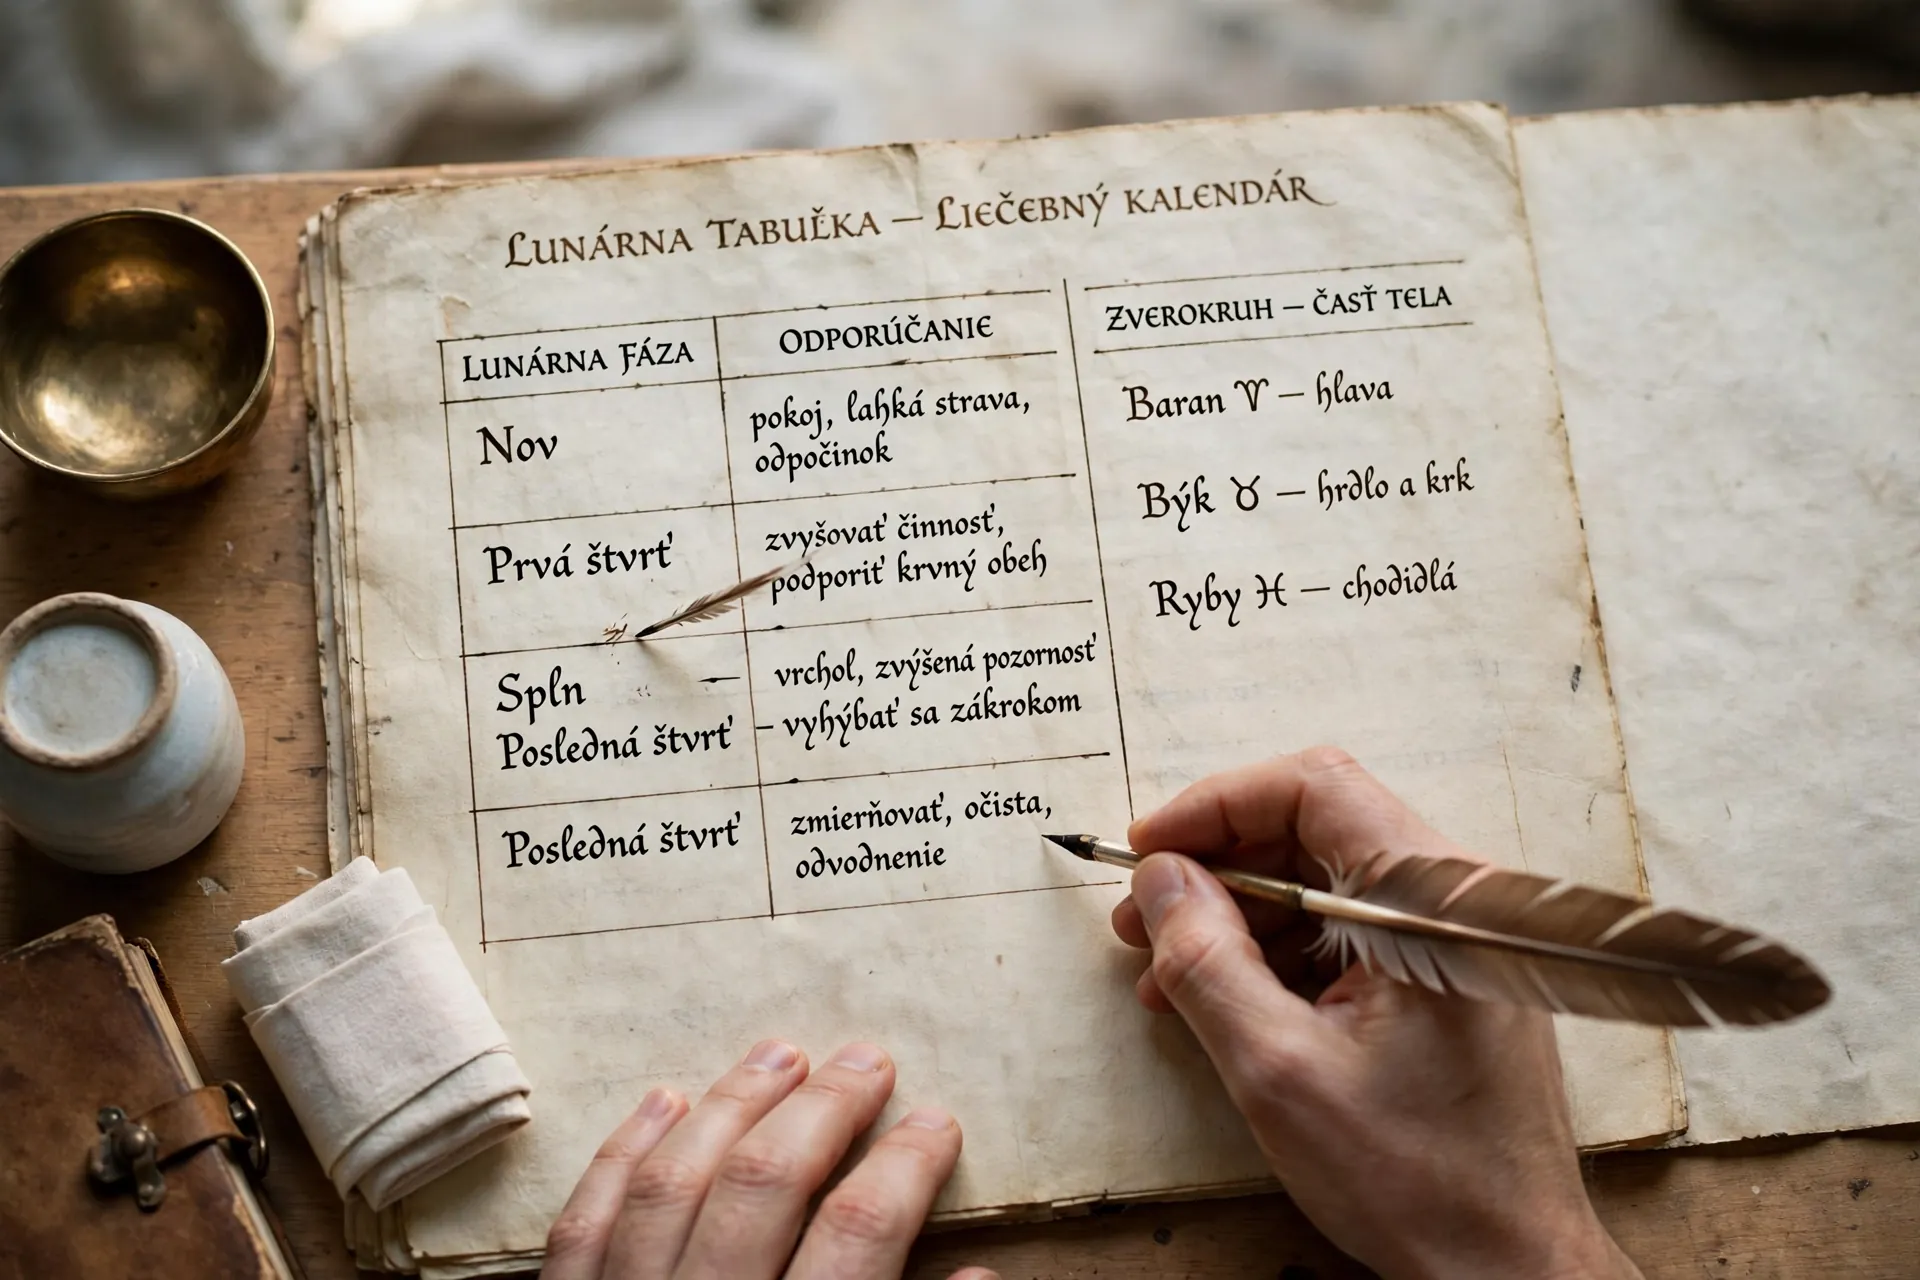 Lunárna Tabuľka — Liečebný kalendár
Lunárna Fáza
Odporúčanie
Nov
pokoj, lahká strava,
odpočinok
Prvá štvrť
zvyšovať činnosť,
podporiť krvný obeh
Spln —
vrchol, zvýšená pozornosť
Posledná štvrť
– vyhýbať sa zákrokom
Posledná štvrť
zmierňovať, očista,
odvodnenie
Zverokruh — časť tela
Baran ♈ — hlava
Býk ♉ — hrdlo a krk
Ryby ♓ — chodidlá